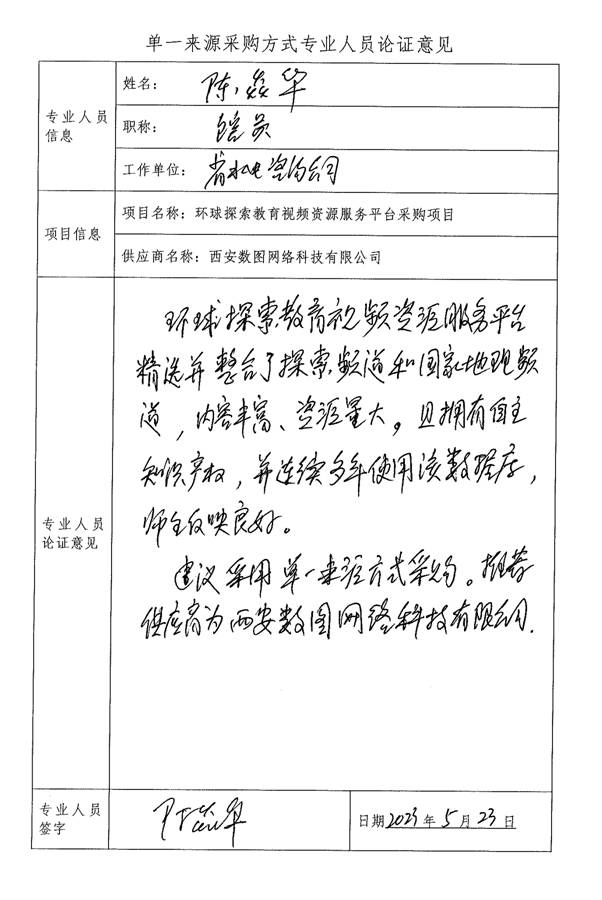 单一来源采购方式专业人员论证意见
专业人员
信息
姓名：陈焱华
职称：
工作单位：省机电咨询公司
项目信息
项目名称：环球探索教育视频资源服务平台采购项目
供应商名称：西安数图网络科技有限公司
专业人员
论证意见
环球探索教育视频资源服务平台
精选并整合了探索频道和国家地理频
道，内容丰富、资源量大。且拥有自主
知识产权，并连续多年使用该数据库，
师生反映良好。
建议采用单一来源方式采购。推荐
供应商为西安数图网络科技有限公司.
专业人员
签字
日期2023年5月23日